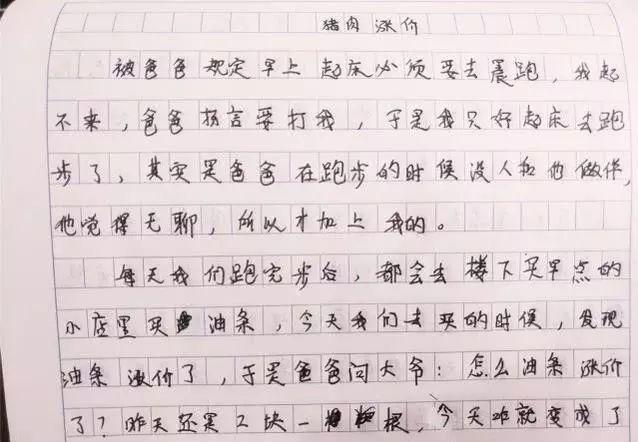 猪肉涨价
被爸爸规定早上起床必须要去晨跑，我起
不来，爸爸扬言要打我，于是我只好起床去跑
步了，其实是爸爸在跑步的时候没人和他做伴，
他觉得无聊，所以才加上我的。
每天我们跑完步后，都会去楼下买早点的
小店里买油条，今天我们去买的时候，发现
油条涨价了，于是爸爸问大爷：怎么油条涨价
了？昨天还是2块一根，今天咋就变成了